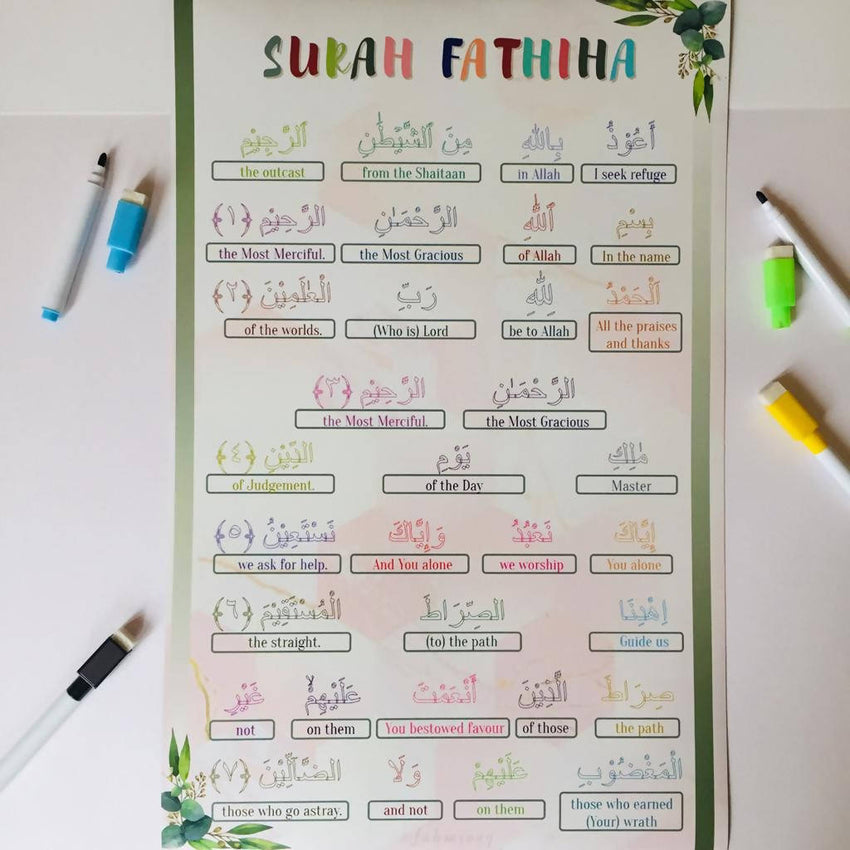 SURAH FATHIHA
اَعُوْذُ بِاللهِ مِنَ الشَّيْطٰنِ الرَّجِيْمِ
I seek refuge in Allah from the Shaitaan the outcast
بِسْمِ اللهِ الرَّحْمٰنِ الرَّحِيْمِ ﴿١﴾
In the name of Allah the Most Gracious the Most Merciful.
اَلْحَمْدُ لِلّٰهِ رَبِّ الْعٰلَمِيْنَ ﴿٢﴾
All the praises and thanks be to Allah (Who is) Lord of the worlds.
الرَّحْمٰنِ الرَّحِيْمِ ﴿٣﴾
the Most Gracious the Most Merciful.
مٰلِكِ يَوْمِ الدِّيْنِ ﴿٤﴾
Master of the Day of Judgement.
إِيَّاكَ نَعْبُدُ وَإِيَّاكَ نَسْتَعِيْنُ ﴿٥﴾
You alone we worship And You alone we ask for help.
اِهْدِنَا الصِّرَاطَ الْمُسْتَقِيْمَ ﴿٦﴾
Guide us (to) the path the straight.
صِرَاطَ الَّذِيْنَ أَنْعَمْتَ عَلَيْهِمْ غَيْرِ
the path of those You bestowed favour on them not
الْمَغْضُوْبِ عَلَيْهِمْ وَلَا الضَّالِّيْنَ ﴿٧﴾
those who earned (Your) wrath on them and not those who go astray.